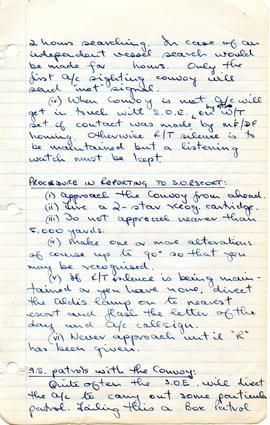 2 hours searching. In case of an
independent vessel search would
be made for    hours. Only the
first a/c sighting convoy will
send "met" signal.
(iv) When Convoy is met a/c will
get in touch with S.O.E. by W/T
set if contact was made by MF/DF
homing. Otherwise R/T silence is to
be maintained but a listening
watch must be kept.
PROCEDURE IN REPORTING TO S.O. ESCORT:
(i) Approach the Convoy from ahead.
(ii) Fire a 2-star recog. cartridge.
(iii) Do not approach nearer than
5,000 yards.
(iv) Make one or more alterations
of course up to 90° so that you
may be recognised.
(v) If R/T silence is being main-
tained or you have none, direct
the aldis lamp on to nearest
escort and flash the letter of the
day and a/c callsign.
(vi) Never approach until "R"
has been given.
A.S. patrols with the Convoy:
Quite often the S.O.E. will direct
the a/c to carry out some particular
patrol. Failing this a Box Patrol